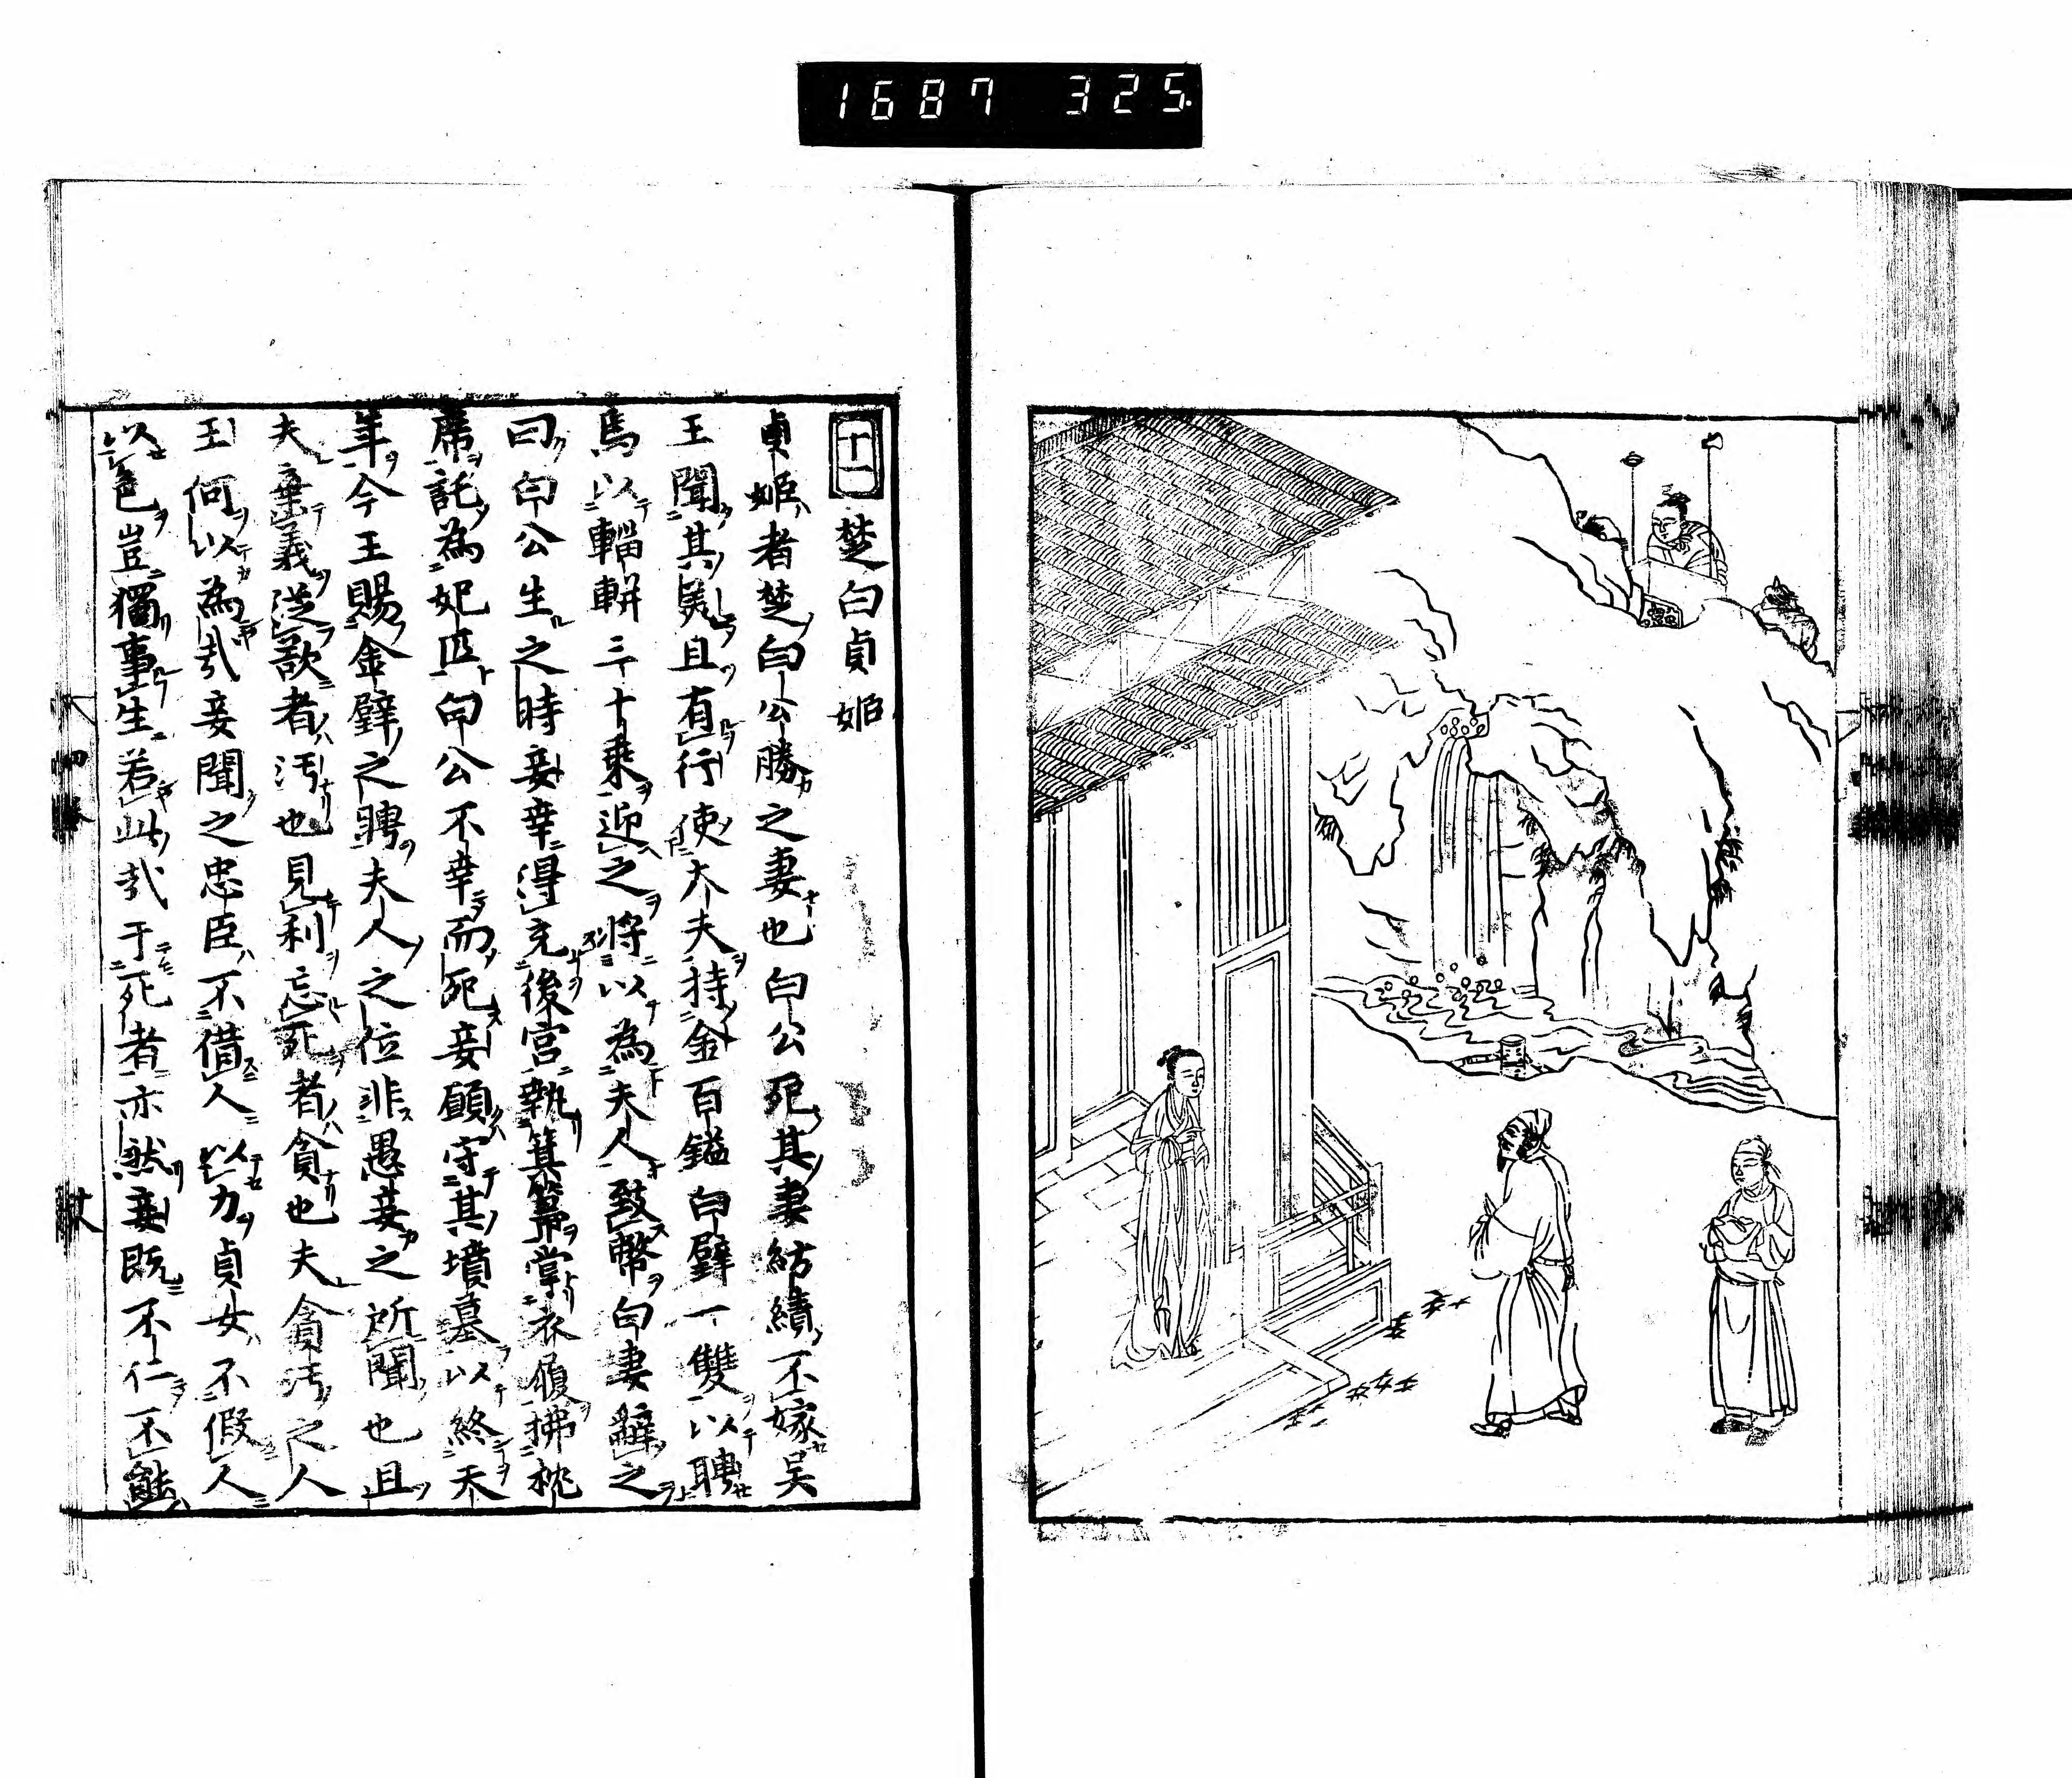 1687 325
十一 楚白貞姬
貞姬者楚白公勝之妻也白公死其妻紡績不嫁吳
王聞其美且有行使大夫持金百鎰白璧一雙以聘
焉以輜軿三十乘迎之將以為夫人致幣白妻辭之
曰白公生之時妾幸得充後宮執箕箒掌衣履拂枕
席託為妃匹白公不幸而死妾願守其墳墓以終天
年今王賜金璧之聘夫人之位非愚妾之所聞也且
夫棄義從欲者汚也見利忘死者貪也夫貪汚之人
王何以為哉妾聞之忠臣不借人以力貞女不假人
以色豈獨事生若此哉于死者亦然妾既不仁不能